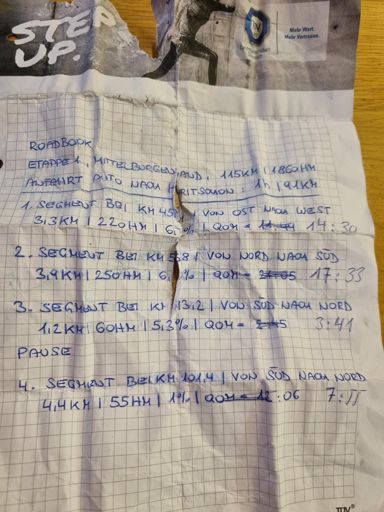 STEP
UP.
Mehr Wert.
Mehr Vertrauen.
ROADBOOK
ETAPPE 1, MITTELBURGENLAND, 115KM | 1860HM
ANFAHRT AUTO NACH RITSCHON: 1h | 91KM
1. SEGMENT BEI KM | VON OST NACH WEST
3,3KM | 220HM | | QOM = 14:30
2. SEGMENT BEI KM 5,8 | VON NORD NACH SÜD
3,9KM | 250HM | % | QOM = 17:33
3. SEGMENT BEI KM 13,2 | VON SÜD NACH NORD
1,2KM | 60HM | 5,3% | QOM = 3:41
PAUSE
4. SEGMENT BEI KM 101,4 | VON SÜD NACH NORD
4,4KM | 55HM | 1% | QOM = 12:06
TÜV®